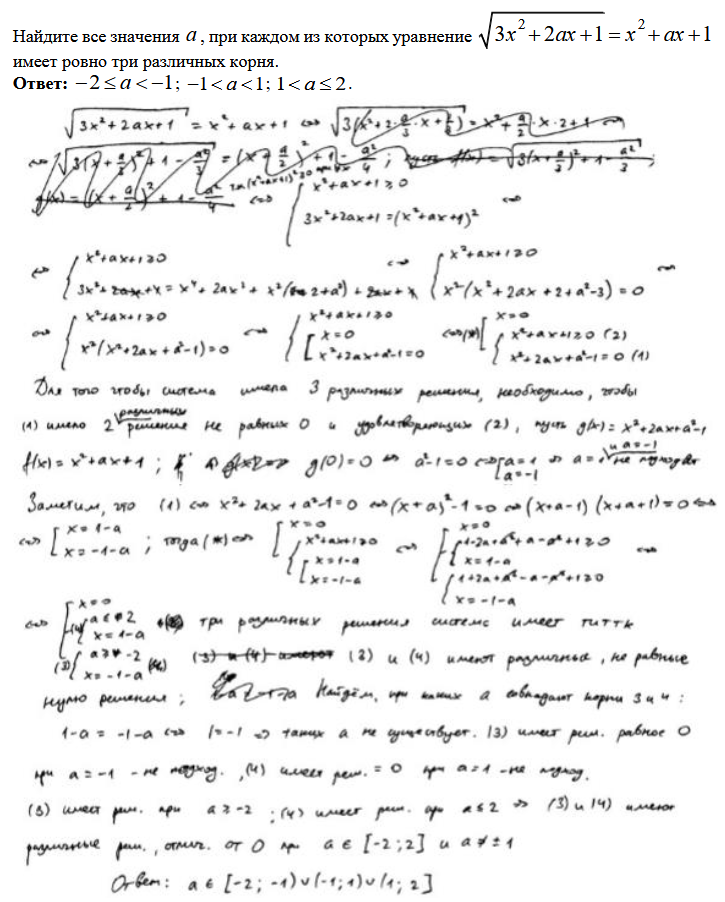 Найдите все значения a, при каждом из которых уравнение √(3x²+2ax+1) = x²+ax+1
имеет ровно три различных корня.
Ответ: −2 ≤ a < −1; −1 < a < 1; 1 < a ≤ 2.
√(3x²+2ax+1) = x²+ax+1 ⇔
x²+ax+1≥0
3x²+2ax+1=(x²+ax+1)² ⇔
⇔ { x²+ax+1≥0 ⇔ { x²+ax+1≥0 ⇔
x²(x²+2ax+2+a²-3)=0
⇔ { x²+ax+1≥0 ⇔ { x²+ax+1≥0 ⇔(*) [ x=0
x²(x²+2ax+a²-1)=0 [ x=0 { x²+ax+1≥0 (2)
x²+2ax+a²-1=0 x²+2ax+a²-1=0 (1)
Для того чтобы система имела 3 различных решения, необходимо, чтобы
(1) имело 2 различных решения не равных 0 и удовлетворяющих (2), пусть g(x)=x²+2ax+a²-1
f(x)=x²+ax+1; g(0)=0 ⇔ a²-1=0 ⇔ [ a=1 a=-1 ⇒ a=1 и a=-1 не подходят
Заметим, что (1) ⇔ x²+2ax+a²-1=0 ⇔ (x+a)²-1=0 ⇔ (x+a-1)(x+a+1)=0 ⇔
⇔ [ x=1-a x=-1-a ; тогда (*) ⇔ [ x=0 { x²+ax+1≥0 [ x=1-a x=-1-a ⇔ [ x=0 { 1-2a+a²+a-a²+1≥0 x=1-a { 1+2a+a²-a-a²+1≥0 x=-1-a ⇔
⇔ [ x=0 { a≤2 x=1-a { a≥-2 x=-1-a три различных решения система имеет титтк
(3) и (4) имеют различные, не равные
нулю решения; Найдём, при каких a совпадают корни 3 и 4:
1-a = -1-a ⇔ 1=-1 ⇒ таких a не существует. (3) имеет реш. равное 0
при a=-1 - не подход., (4) имеет реш. = 0 при a=1 - не подход.
(3) имеет реш. при a≥-2; (4) имеет реш. при a≤2 ⇒ (3) и (4) имеют
различные реш., отлич. от 0 при a ∈ [-2;2] и a≠±1
Ответ: a ∈ [-2; -1) ∪ (-1; 1) ∪ (1; 2]